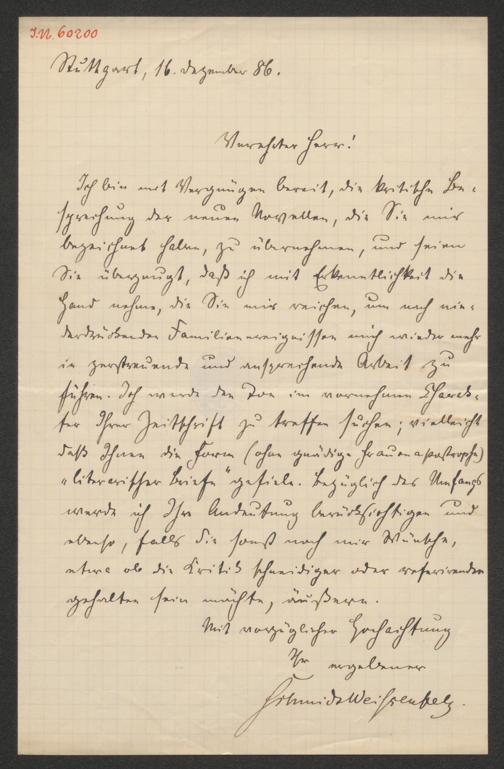 I.N. 60200
Stuttgart, 16. Dezember 86.
Verehrter Herr!
Ich bin mit Vergnügen bereit, die kritische Be-
sprechung der neuen Novellen, die Sie mir
bezeichnet haben, zu übernehmen, und seien
Sie überzeugt, daß ich mit Erkenntlichkeit die
Hand nehme, die Sie mir reichen, um nach nie-
derdrückenden Familienereignissen mich wieder mehr
in zerstreuende und ansprechende Arbeit zu
führen. Ich werde den Ton im vornehmen Charak-
ter Ihrer Zeitschrift zu treffen suchen; vielleicht
daß Ihnen die Form (ohne gnädige Frauenapostrophe)
„literarischer Briefe" gefiele. Bezüglich des Umfangs
werde ich Ihre Andeutung berücksichtigen und
ebenso, falls Sie sonst noch mir Wünsche,
etwa ob die Kritik schneidiger oder referirender
gehalten sein möchte, äußern.
Mit vorzüglicher Hochachtung
Ihr ergebener
Schmidt-Weißenfels.